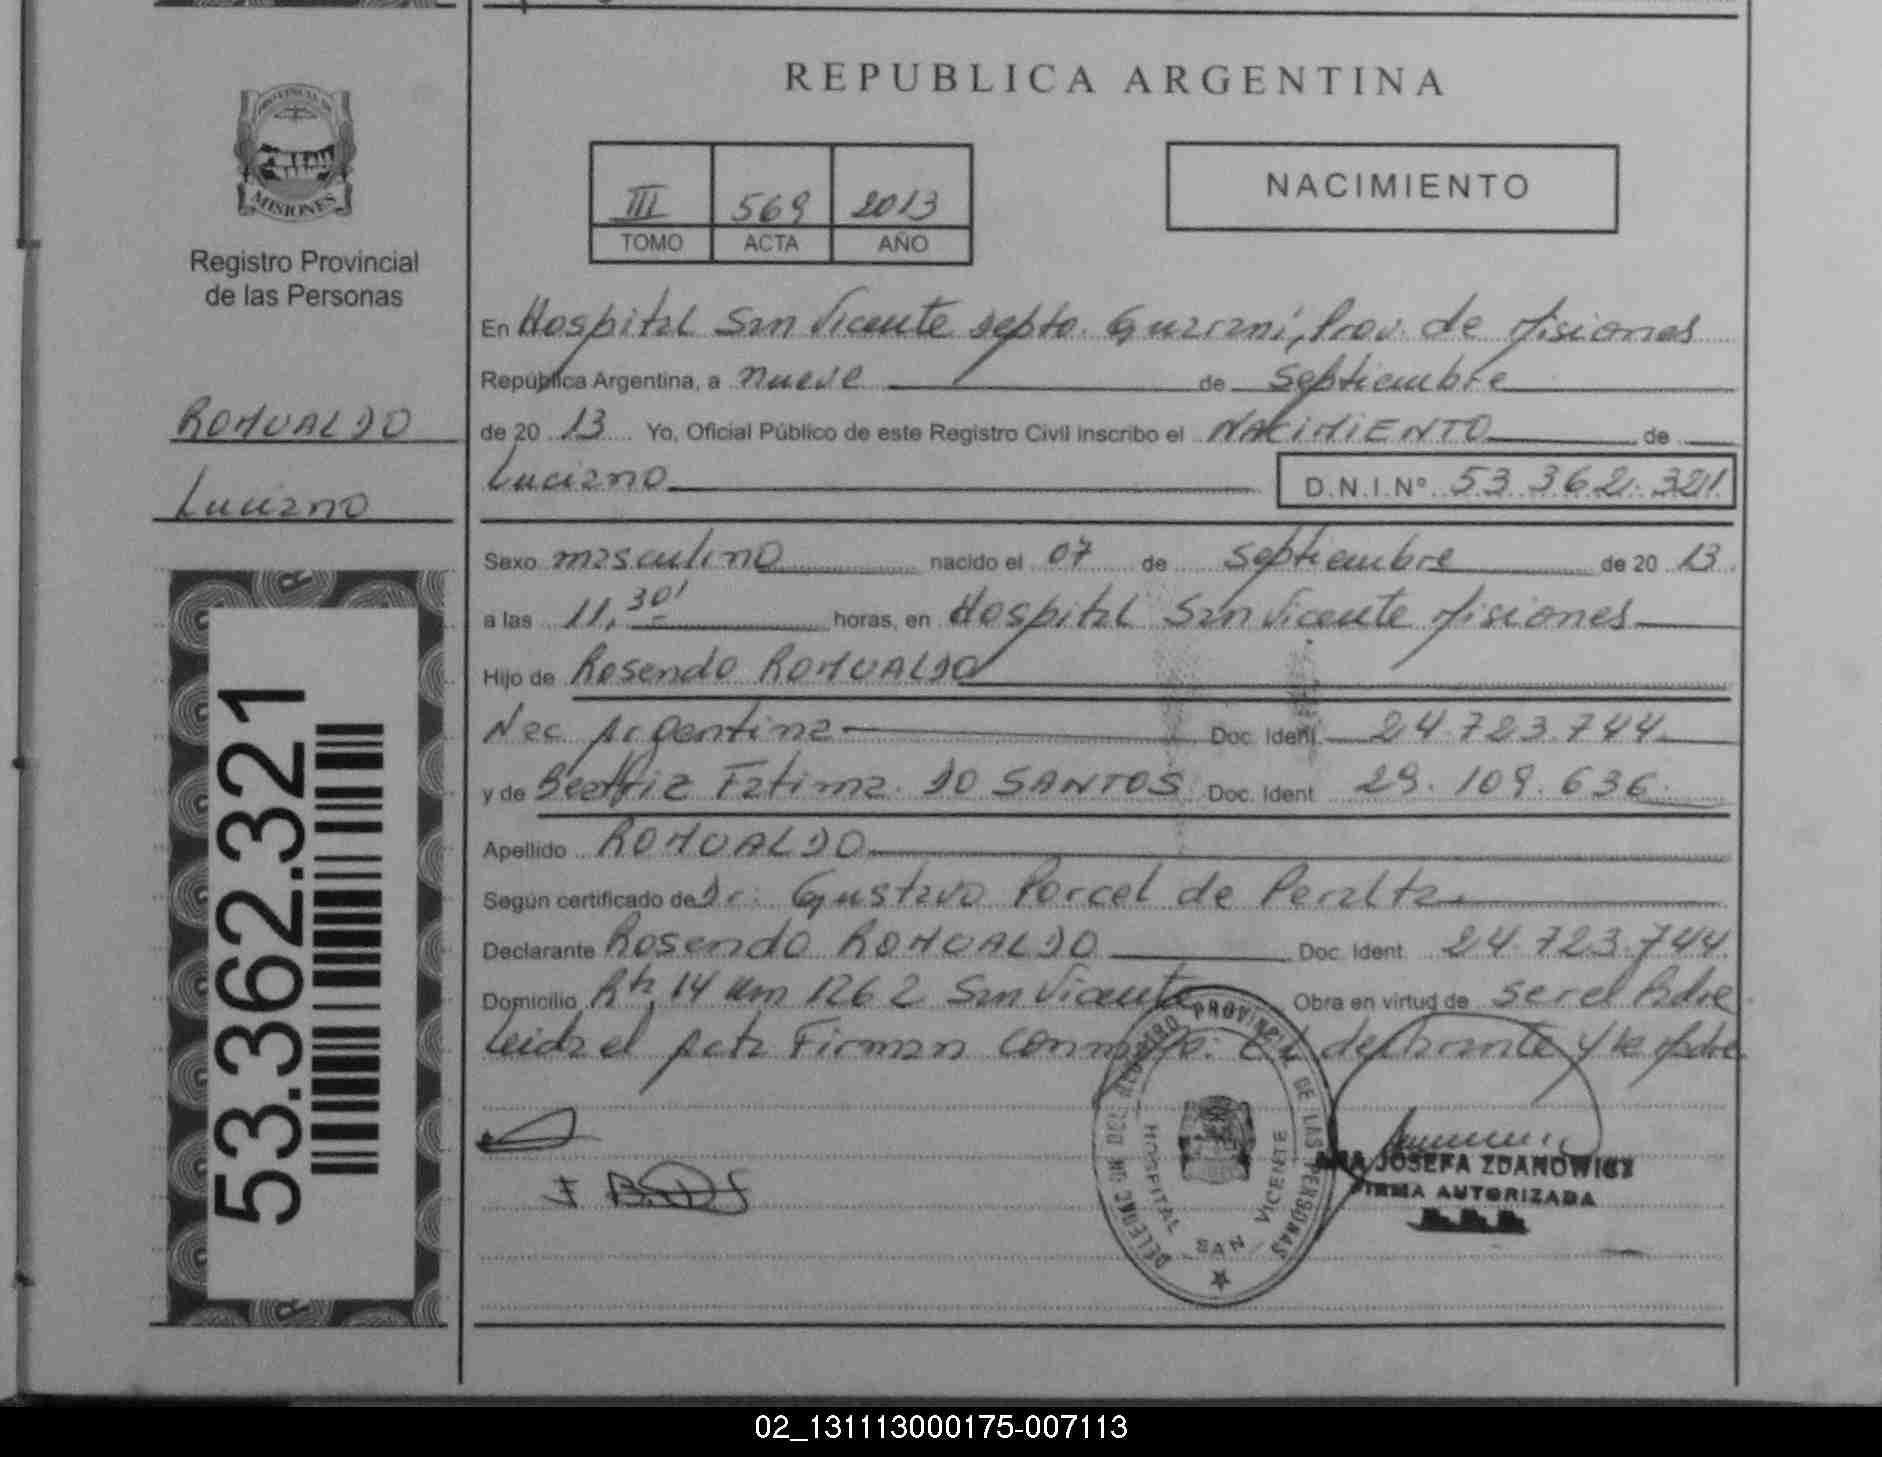 PROVINCIA DE
MISIONES
Registro Provincial
de las Personas
ROMUALDO
Luciano
53.362.321
REPUBLICA ARGENTINA
III 569 2013
TOMO ACTA AÑO
NACIMIENTO
En Hospital San Vicente Depto. Guarani, Prov. de Misiones
República Argentina, a nueve de Septiembre
de 20 13 Yo, Oficial Público de este Registro Civil inscribo el NACIMIENTO de
Luciano D.N.I.Nº 53.362.321
Sexo masculino nacido el 07 de Septiembre de 20 13
a las 11,30' horas, en Hospital San Vicente Misiones
Hijo de Rosendo ROMUALDO
Nac. Argentina Doc. Ident. 24.723.744
y de Beatriz Fatima DO SANTOS Doc. Ident 29.109.636
Apellido ROMUALDO
Según certificado de Dr: Gustavo Porcel de Peralta
Declarante Rosendo ROMUALDO Doc. Ident 24.723.744
Domicilio Rta 14 Km 1262 San Vicente Obra en virtud de ser el Padre
Leida el Acta Firman conmigo: El declarante y la Madre
DELEGACION DEL REGISTRO PROVINCIAL DE LAS PERSONAS
HOSPITAL SAN VICENTE
ANA JOSEFA ZDANOWICZ
FIRMA AUTORIZADA
02_131113000175-007113